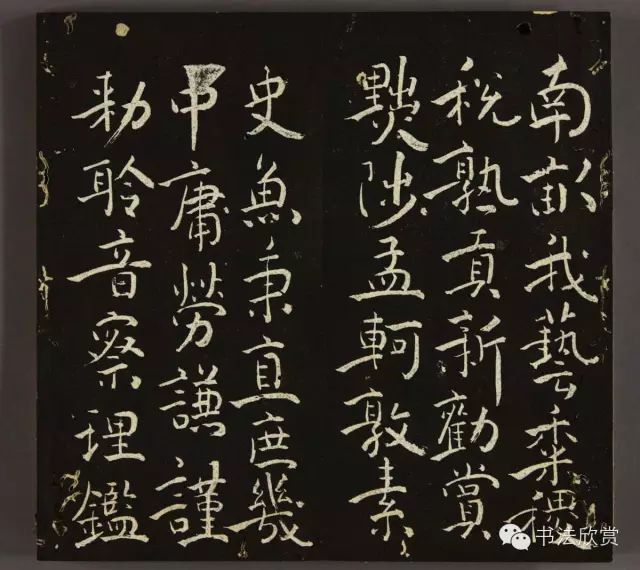 南畝我藝黍稷
稅熟貢新勸賞
黜陟孟軻敦素
史魚秉直庶幾
中庸勞謙謹
勑聆音察理鑑
书法欣赏